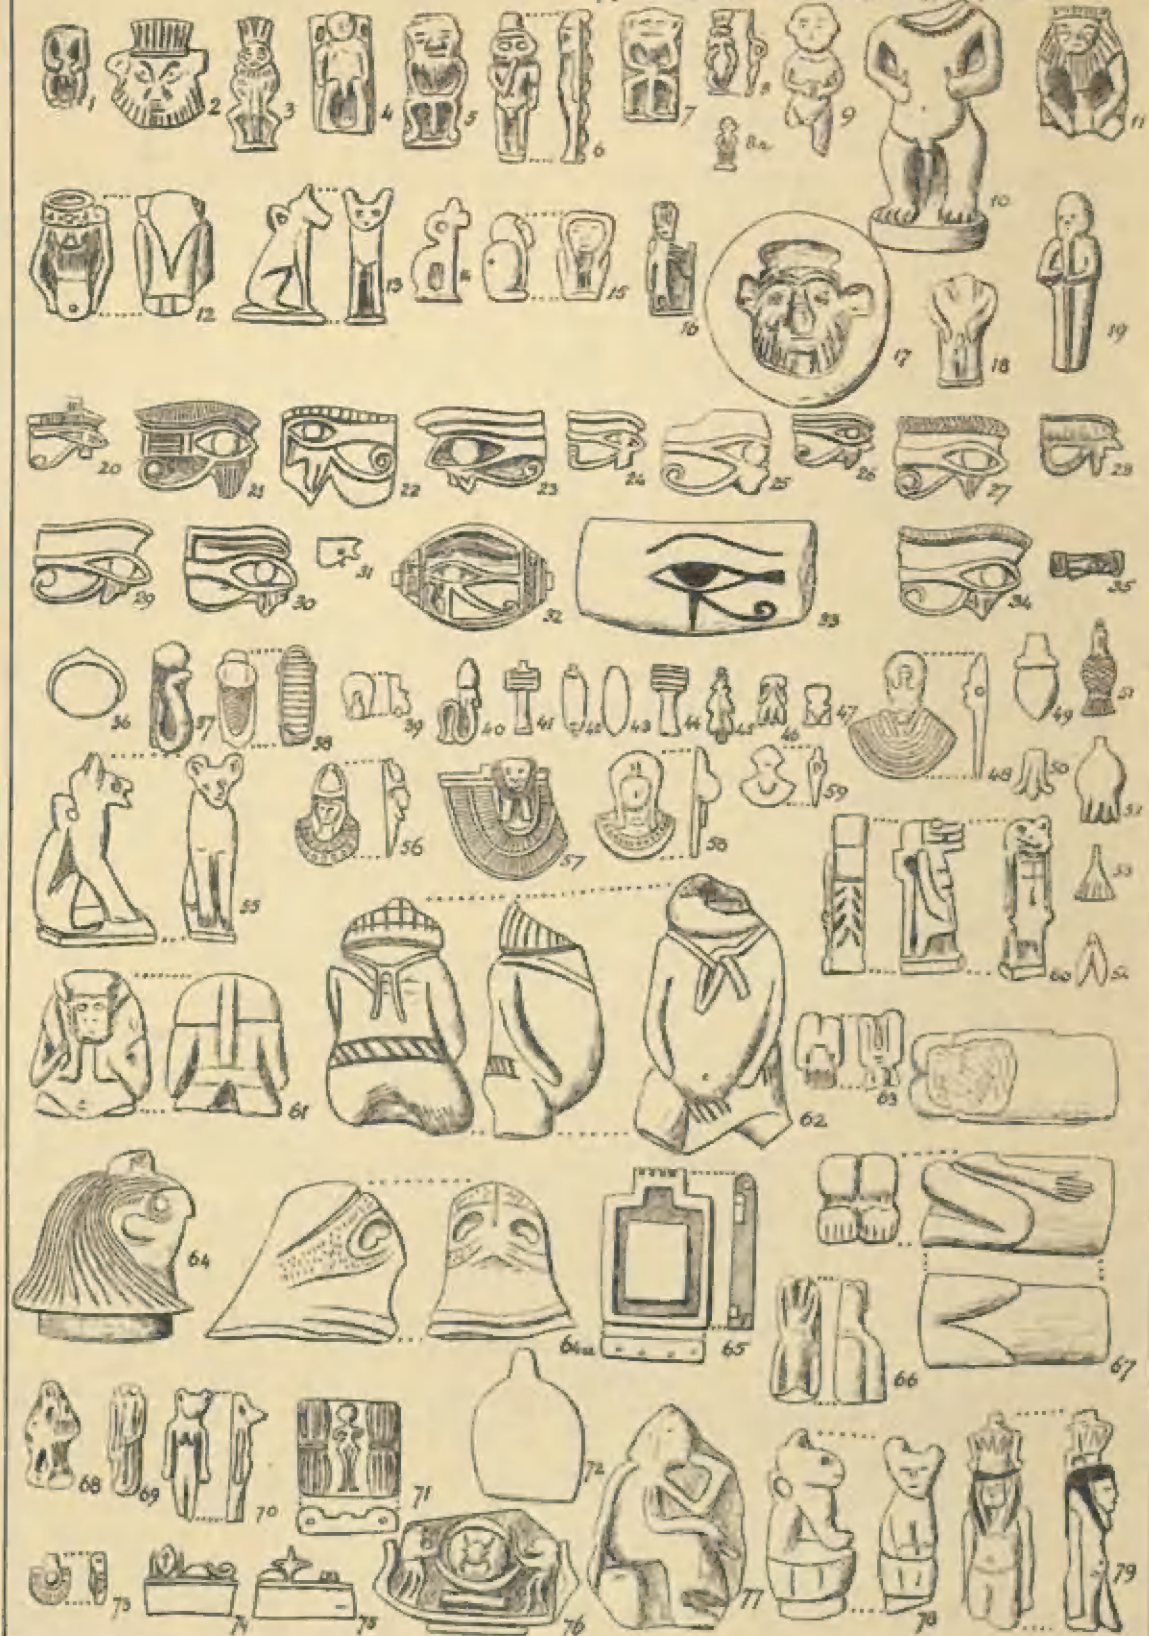 1 2 3 4 5 6 7 8 8a 9 10 11
12 13 14 15 16 17 18 19
20 21 22 23 24 25 26 27 28
29 30 31 32 33 34 35
36 37 38 39 40 41 42 43 44 45 46 47 48 49 50 51
55 56 57 58 59 60 52 53 54
61 62 63
64 64a 65 66 67
68 69 70 71 72
73 74 75 76 77 78 79